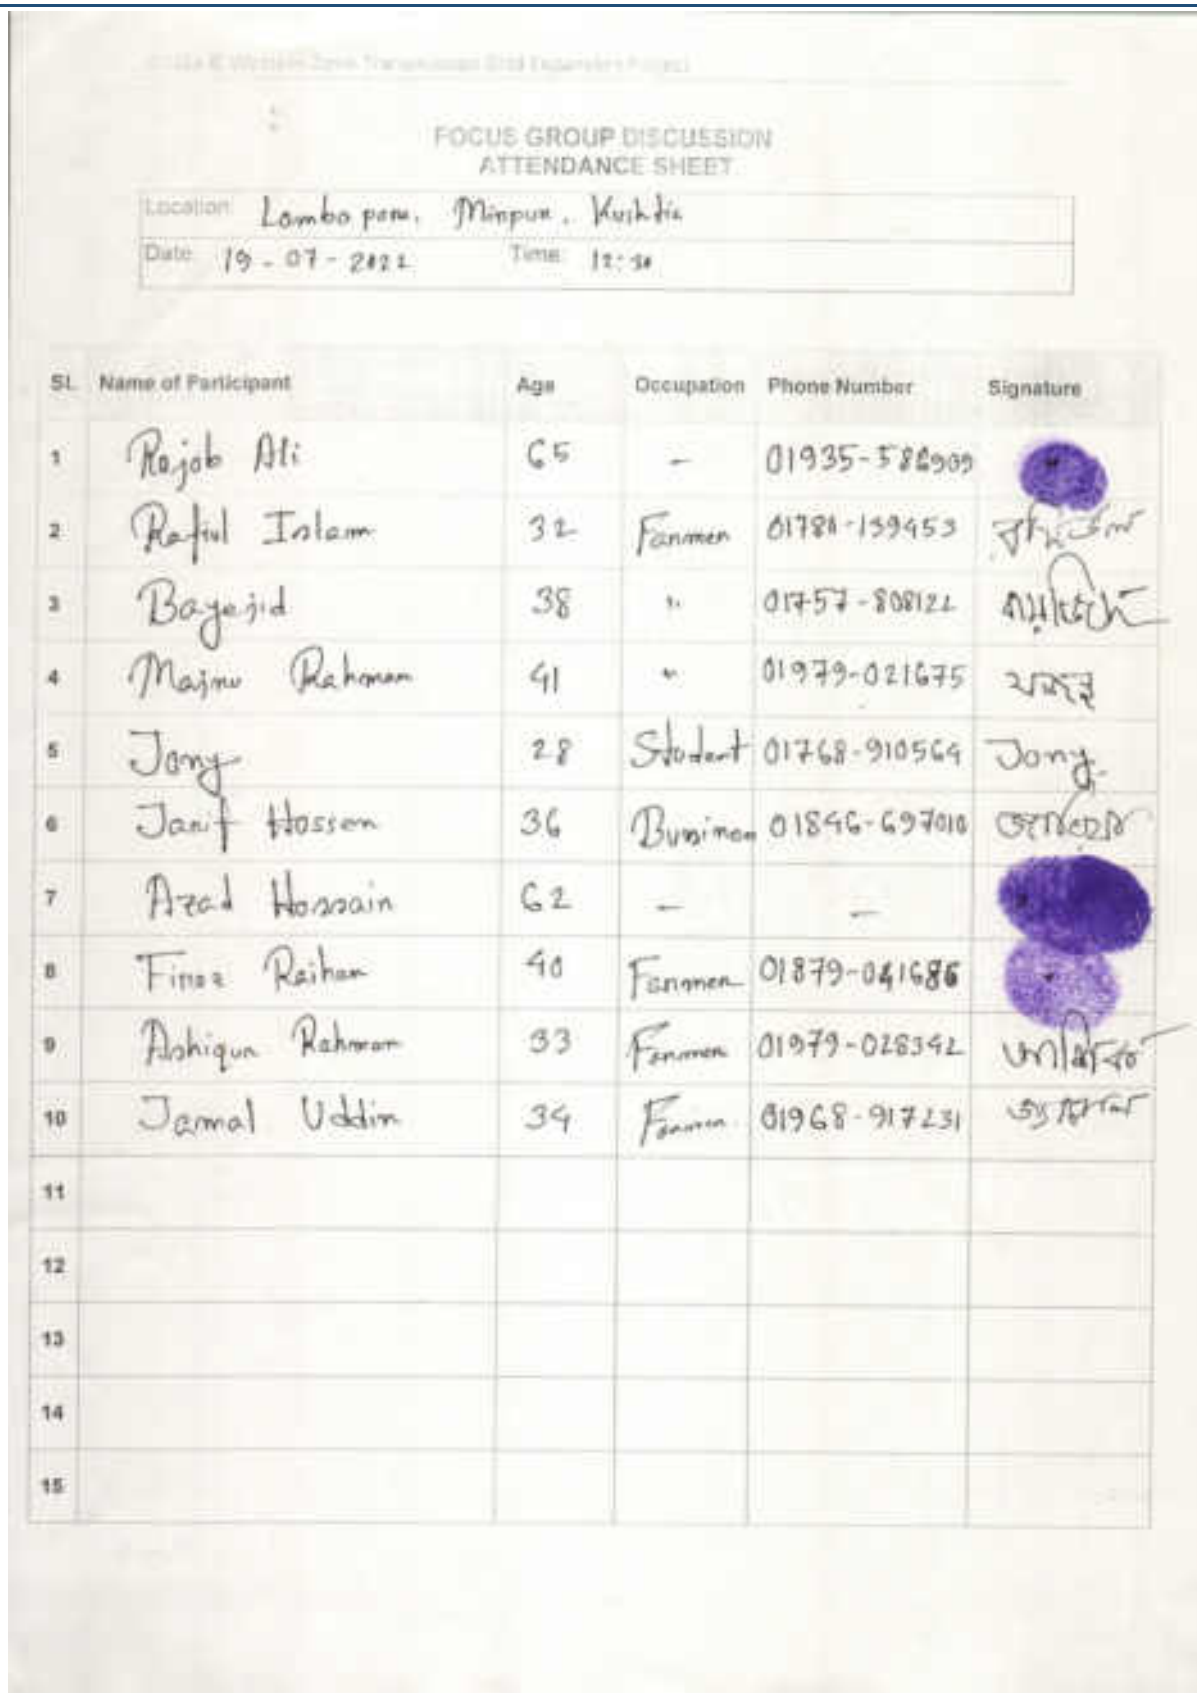 Western Zone Transmission Grid Expansion Project
FOCUS GROUP DISCUSSION
ATTENDANCE SHEET
Location: Lambo para, Mirpur, Kushtia
Date: 19-07-2022 Time: 12:30
SL Name of Participant Age Occupation Phone Number Signature
1 Rajob Ali 65 - 01935-586909
2 Rafiul Islam 32 Farmer
3 Bayejid 38 " 01757-808122
4 Majnu Rahman 41 " 01979-021675
5 Jony 28 Student 01768-910564 Jony
6 Janif Hossen 36 01846-697010
7 Azad Hossain 62 - -
8 Firoz Raihan 40 Farmer 01879-041686
9 Ashiqur Rahman 33 Farmer 01979-028342
10 Jamal Uddin 34 Farmer 01968-917231
11
12
13
14
15